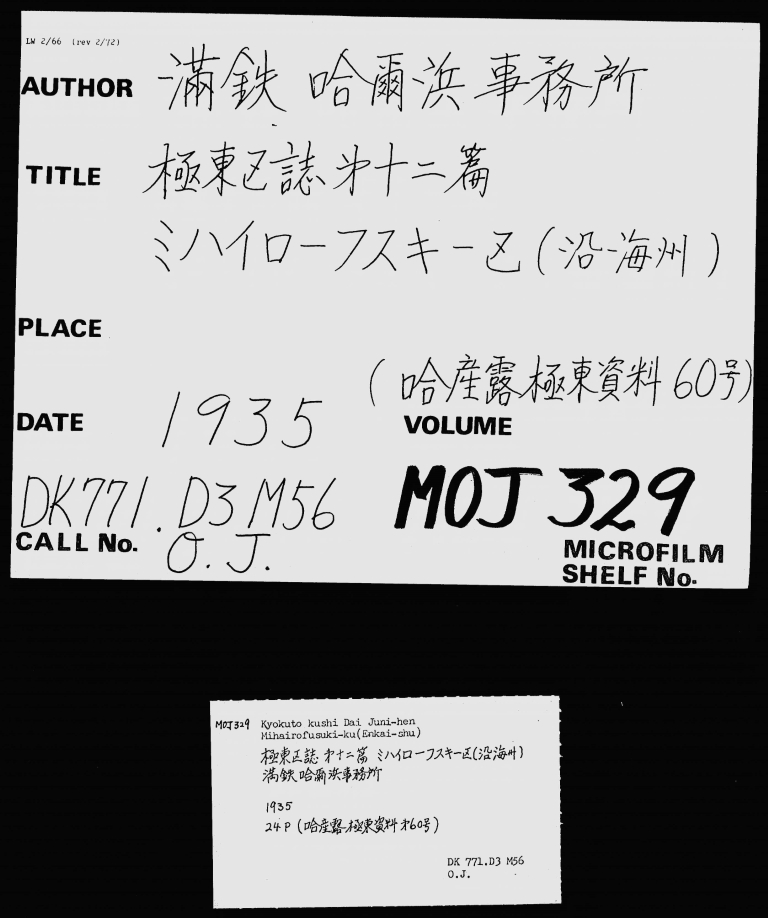 LW 2/66 (rev 2/72)
AUTHOR 満鉄 哈爾浜事務所
TITLE 極東区誌 第十二篇
ミハイローフスキー区(沿海州)
PLACE
(哈産露極東資料60号)
DATE 1935 VOLUME
DK771.D3M56 MOJ 329
CALL No. O.J. MICROFILM
SHELF No.
MOJ329 Kyokuto kushi Dai Juni-hen
Mihairofusuki-ku(Enkai-shu)
極東区誌 第十二篇 ミハイローフスキー区(沿海州)
満鉄哈爾浜事務所
1935
24P (哈産露極東資料第60号)
DK 771.D3 M56
O.J.